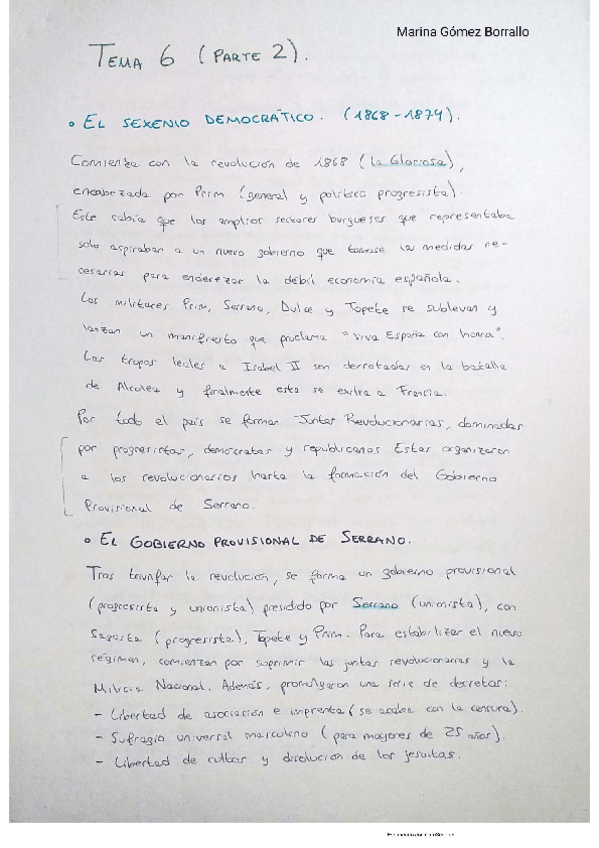 Marina Gómez Borrallo
TEMA 6 (PARTE 2).
• EL SEXENIO DEMOCRÁTICO. (1868-1874).
Comienza con la revolución de 1868 (la Gloriosa),
encabezada por Prim (general y político progresista).
Este sabía que los amplios sectores burgueses que representaba
solo aspiraban a un nuevo gobierno que tomase la medidas ne-
cesarias para enderezar la débil economía española.
Los militares Prim, Serrano, Dulce y Topete se sublevan y
lanzan un manifiesto que proclama "viva España con honra".
Las tropas leales a Isabel II son derrotadas en la batalla
de Alcolea y finalmente esta se exilia a Francia.
Por todo el país se forman Juntas Revolucionarias, dominadas
por progresistas, demócratas y republicanos Estas organizaron
a los revolucionarios hasta la formación del Gobierno
Provisional de Serrano.
• EL GOBIERNO PROVISIONAL DE SERRANO.
Tras triunfar la revolución, se forma un gobierno provisional
(progresista y unionista) presidido por Serrano (unionista), con
Sagasta (progresista), Topete y Prim. Para estabilizar el nuevo
régimen, comienzan por suprimir las juntas revolucionarias y la
Milicia Nacional. Además, promulgaron una serie de decretos:
- Libertad de asociación e imprenta (se acaba con la censura).
- Sufragio universal masculino (para mayores de 25 años).
- Libertad de cultos y disolución de los jesuitas.